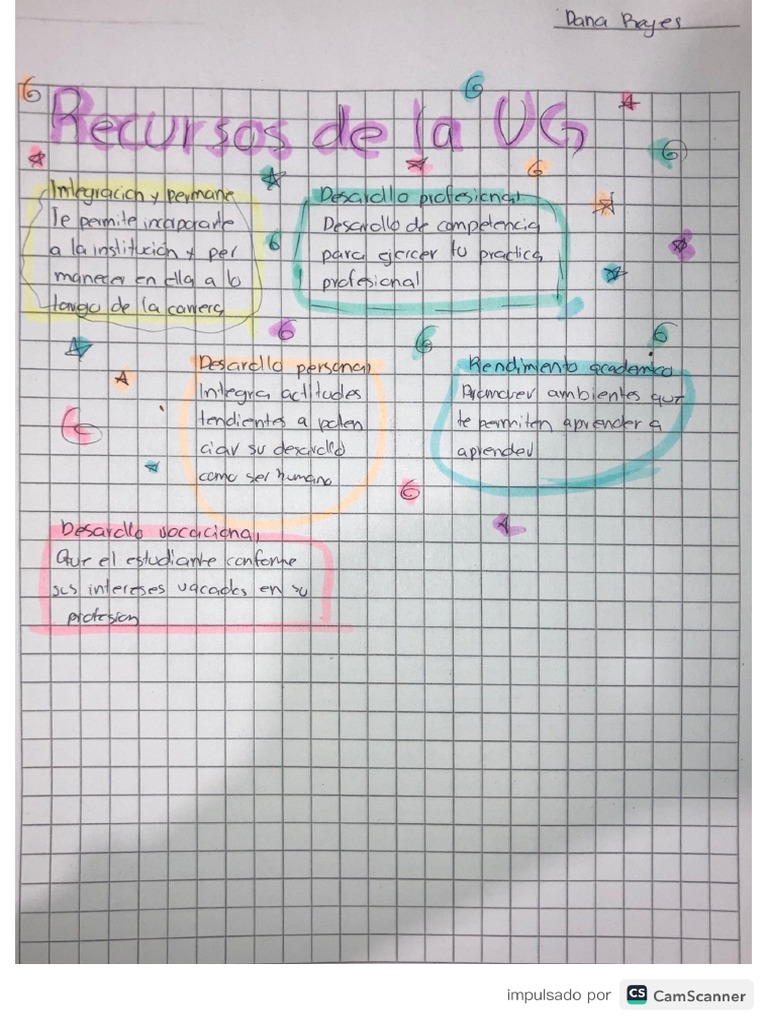 Dana Reyes
Recursos de la UG
Integracion y permane
Te permite incorporarte
a la institución y per
manecer en ella a lo
largo de la carrera
Desarollo profesional
Desarollo de competencia
para ejercer tu practica
profesional
Desarollo personal
Integra actitudes
tendientes a poten
ciar su desarollo
como ser humano
Rendimiento academico
Promover ambientes que
te permiten aprender a
aprender
Desarollo vocacional
Que el estudiante conforme
sus intereses vacados en su
profesion
impulsado por CS CamScanner